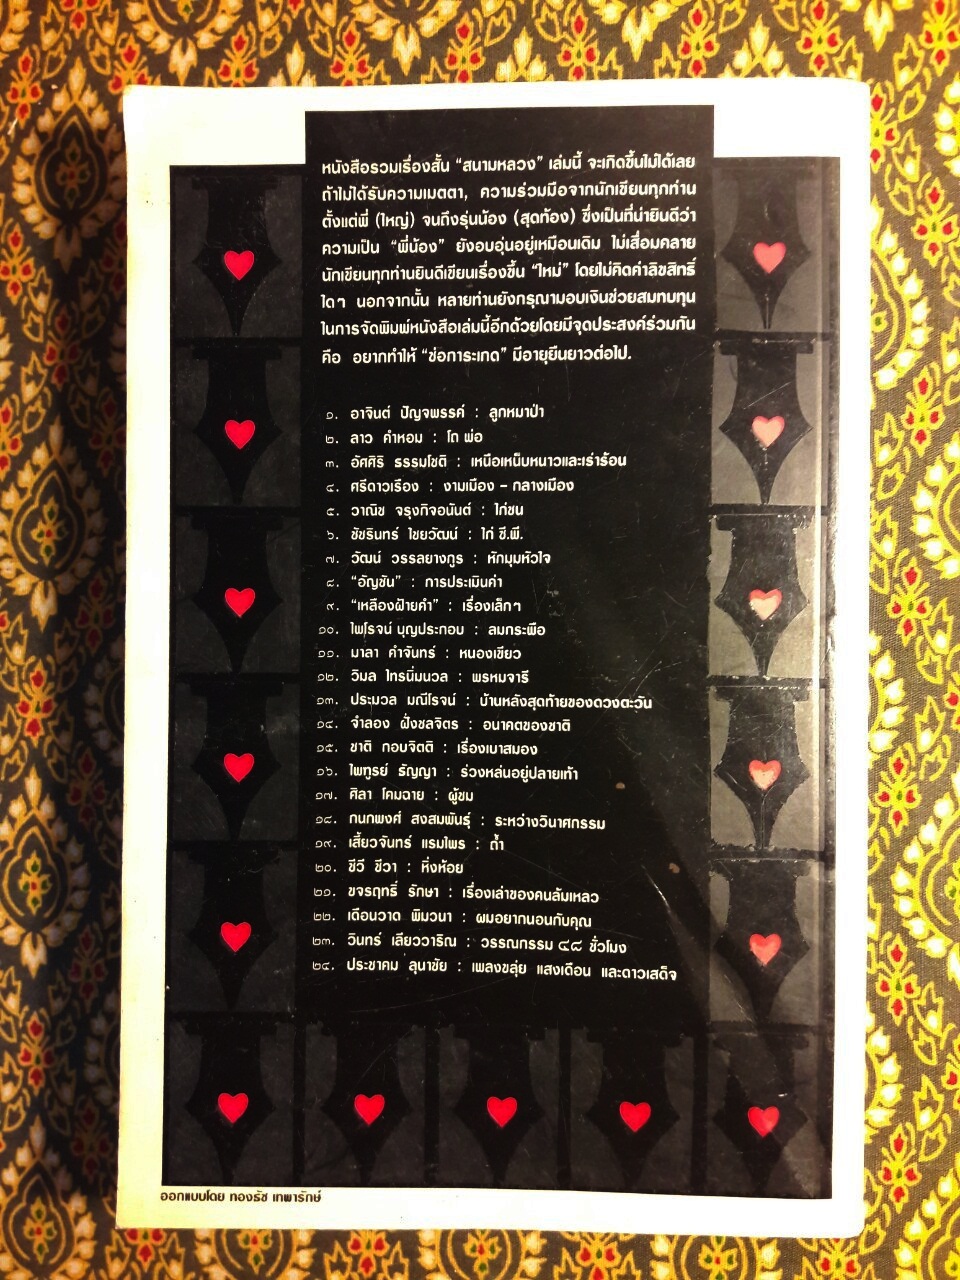 หนังสือรวมเรื่องสั้น “สนามหลวง” เล่มนี้ จะเกิดขึ้นไม่ได้เลย
ถ้าไม่ได้รับความเมตตา, ความร่วมมือจากนักเขียนทุกท่าน
ตั้งแต่พี่ (ใหญ่) จนถึงรุ่นน้อง (สุดท้อง) ซึ่งเป็นที่น่ายินดีว่า
ความเป็น “พี่น้อง” ยังอบอุ่นอยู่เหมือนเดิม ไม่เสื่อมคลาย
นักเขียนทุกท่านยินดีเขียนเรื่องขึ้น “ใหม่” โดยไม่คิดค่าลิขสิทธิ์
ใดๆ นอกจากนั้น หลายท่านยังกรุณามอบเงินช่วยสมทบทุน
ในการจัดพิมพ์หนังสือเล่มนี้อีกด้วยโดยมีจุดประสงค์ร่วมกัน
คือ อยากทำให้ “ช่อการะเกด” มีอายุยืนยาวต่อไป.
๑. อาจินต์ ปัญจพรรค์ : ลูกหมาป่า
๒. ลาว คำหอม : โถ พ่อ
๓. อัศศิริ ธรรมโชติ : เหนือเหน็บหนาวและเร่าร้อน
๔. ศรีดาวเรือง : งามเมือง – กลางเมือง
๕. วาณิช จรุงกิจอนันต์ : ไก่ชน
๖. ชัชรินทร์ ไชยวัฒน์ : ไก่ ซี.พี.
๗. วัฒน์ วรรลยางกูร : หักมุมหัวใจ
๘. “อัญชัน” : การประเมินค่า
๙. “เหลืองฝ้ายคำ” : เรื่องเล็กๆ
๑๐. ไพโรจน์ บุญประกอบ : ลมกระพือ
๑๑. มาลา คำจันทร์ : หนองเขียว
๑๒. วิมล ไทรนิ่มนวล : พรหมจารี
๑๓. ประมวล มณีโรจน์ : บ้านหลังสุดท้ายของดวงตะวัน
๑๔. จำลอง ฝั่งชลจิตร : อนาคตของชาติ
๑๕. ชาติ กอบจิตติ : เรื่องเบาสมอง
๑๖. ไพฑูรย์ ธัญญา : ร่วงหล่นอยู่ปลายเท้า
๑๗. ศิลา โคมฉาย : ผู้ชม
๑๘. กนกพงศ์ สงสมพันธุ์ : ระหว่างวินาศกรรม
๑๙. เสี้ยวจันทร์ แรมไพร : ถ้ำ
๒๐. ชีวี ชีวา : หิ่งห้อย
๒๑. ขจรฤทธิ์ รักษา : เรื่องเล่าของคนล้มเหลว
๒๒. เดือนวาด พิมวนา : ผมอยากนอนกับคุณ
๒๓. วินทร์ เลียววาริณ : วรรณกรรม ๔๘ ชั่วโมง
๒๔. ประชาคม ลุนาชัย : เพลงขลุ่ย แสงเดือน และดาวเสด็จ
ออกแบบโดย ทองธัช เทพารักษ์